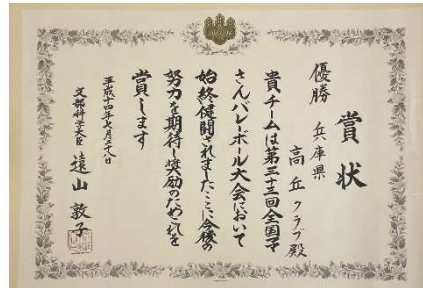 賞状
優勝 兵庫県
高丘クラブ殿
貴チームは第三十三回全国マ
さんバレーボール大会において
始終健闘されましたことに今後の
努力を期待し奨励のためこれを
賞します
平成十四年七月二十八日
文部科学大臣 遠山敦子